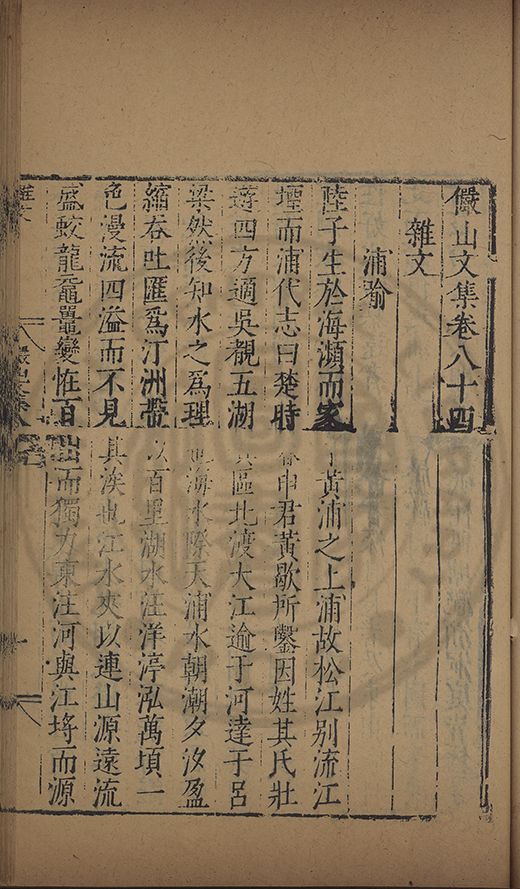 儼山文集卷八十四
雜文
浦喻
陸子生於海瀕而家于黃浦之上浦故松江别流江
壖而浦代志曰楚時春申君黃歇所鑿因姓其氏壯
遊四方適吳觀五湖具區北渡大江逾于河達于呂
梁然後知水之爲理也海水際天浦水朝潮夕汐盈
縮吞吐匯爲汀洲帶以百里湖水汪洋渟泓萬頃一
色漫流四溢而不見其涘也江水夾以連山源遠流
盛蛟龍黿鼉變恠百出而獨力東注河與江埓而源